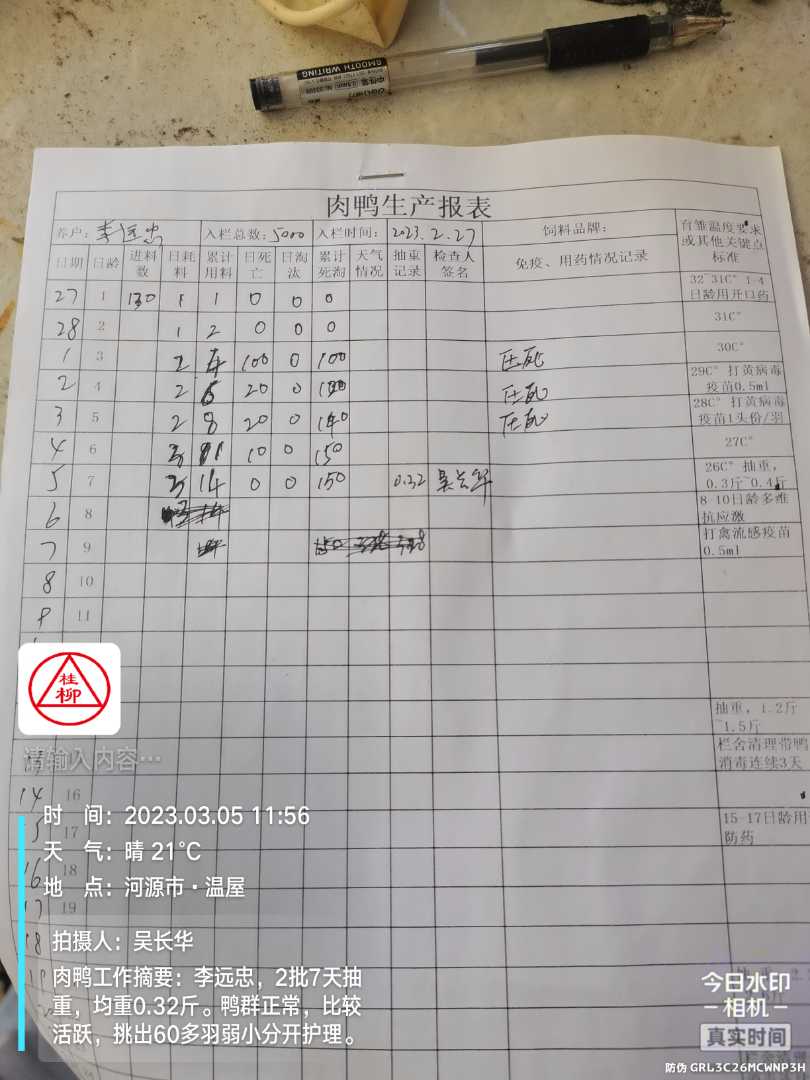 SMOOTH WRITING
中性笔
肉鸭生产报表
养户：李远忠 入栏总数：5000 入栏时间：2023.2.27 饲料品牌： 育雏温度要求或其他关键点标准
日期 日龄 进料数 日耗料 累计用料 日死亡 日淘汰 累计死淘 天气情况 抽重记录 检查人签名 免疫、用药情况记录
27 1 130 1 1 0 0 0 32~31C° 1-4日龄用开口药
28 2 1 2 0 0 0 31C°
1 3 2 4 100 0 100 压死 30C°
2 4 2 6 20 0 120 压死 29C° 打黄病毒疫苗0.5ml
3 5 2 8 20 0 140 压死 28C° 打黄病毒疫苗1头份/羽
4 6 3 11 10 0 150 27C°
5 7 3 14 0 0 150 0.32 吴长华 26C° 抽重，0.3斤~0.4斤
6 8 8-10日龄多维抗应激
7 9 打禽流感疫苗0.5ml
8 10
9 11
桂柳
抽重，1.2斤~1.5斤
请输入内容…
栏舍清理带鸭消毒连续3天
14 16
时 间：2023.03.05 11:56
15 17 15-17日龄用防药
天 气：晴 21℃
16 18
地 点：河源市·温屋
17 19
18
拍摄人：吴长华
肉鸭工作摘要：李远忠，2批7天抽
重，均重0.32斤。鸭群正常，比较
活跃，挑出60多羽弱小分开护理。
今日水印
相机
真实时间
防伪 GRL3C26MCWNP3H